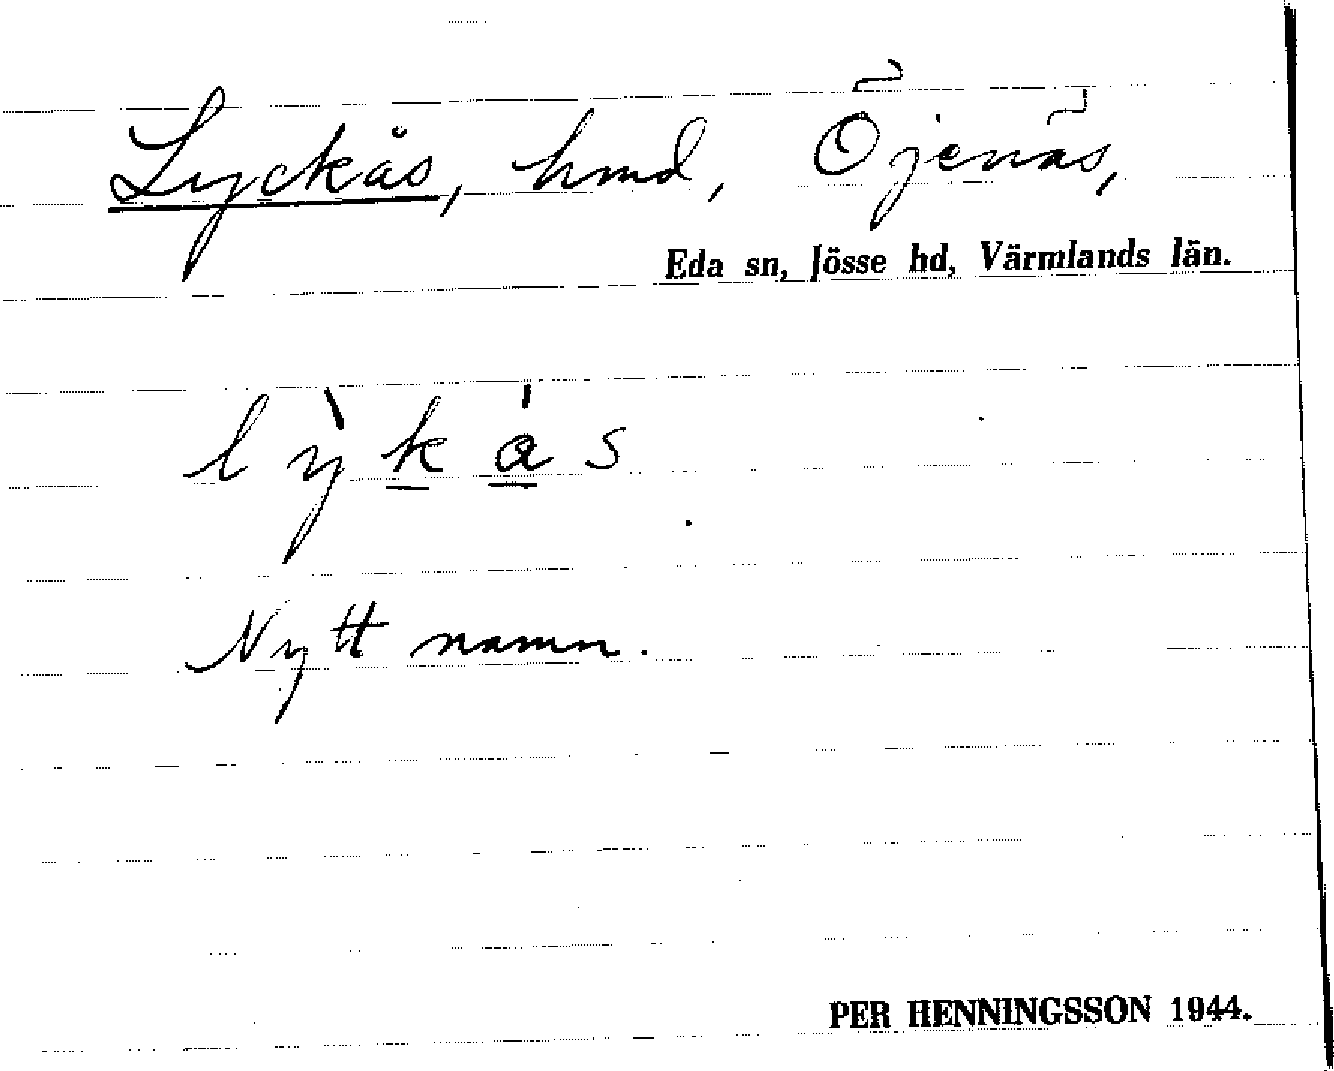 Lyckås, hmd, Öjenäs,
Eda sn, Jösse hd, Värmlands län.
lỳkás
Nytt namn.
PER HENNINGSSON 1944.